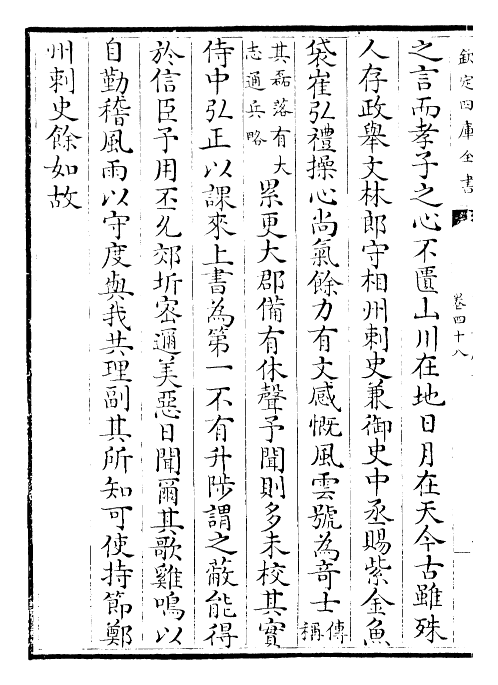 欽定四庫全書
卷四十八
之言而孝子之心不匱山川在地日月在天今古雖殊
人存政舉文林郎守相州刺史兼御史中丞賜紫金魚
袋崔弘禮操心尚氣餘力有文感慨風雲號為竒士傳稱
其磊落有大志通兵略累更大郡備有休聲予聞則多未校其實
侍中弘正以課來上書為第一不有升陟謂之蔽能得
於信臣予用丕允郊圻宻邇美惡日聞爾其歌雞鳴以
自勤稽風雨以守度與我共理副其所知可使持節鄭
州刺史餘如故